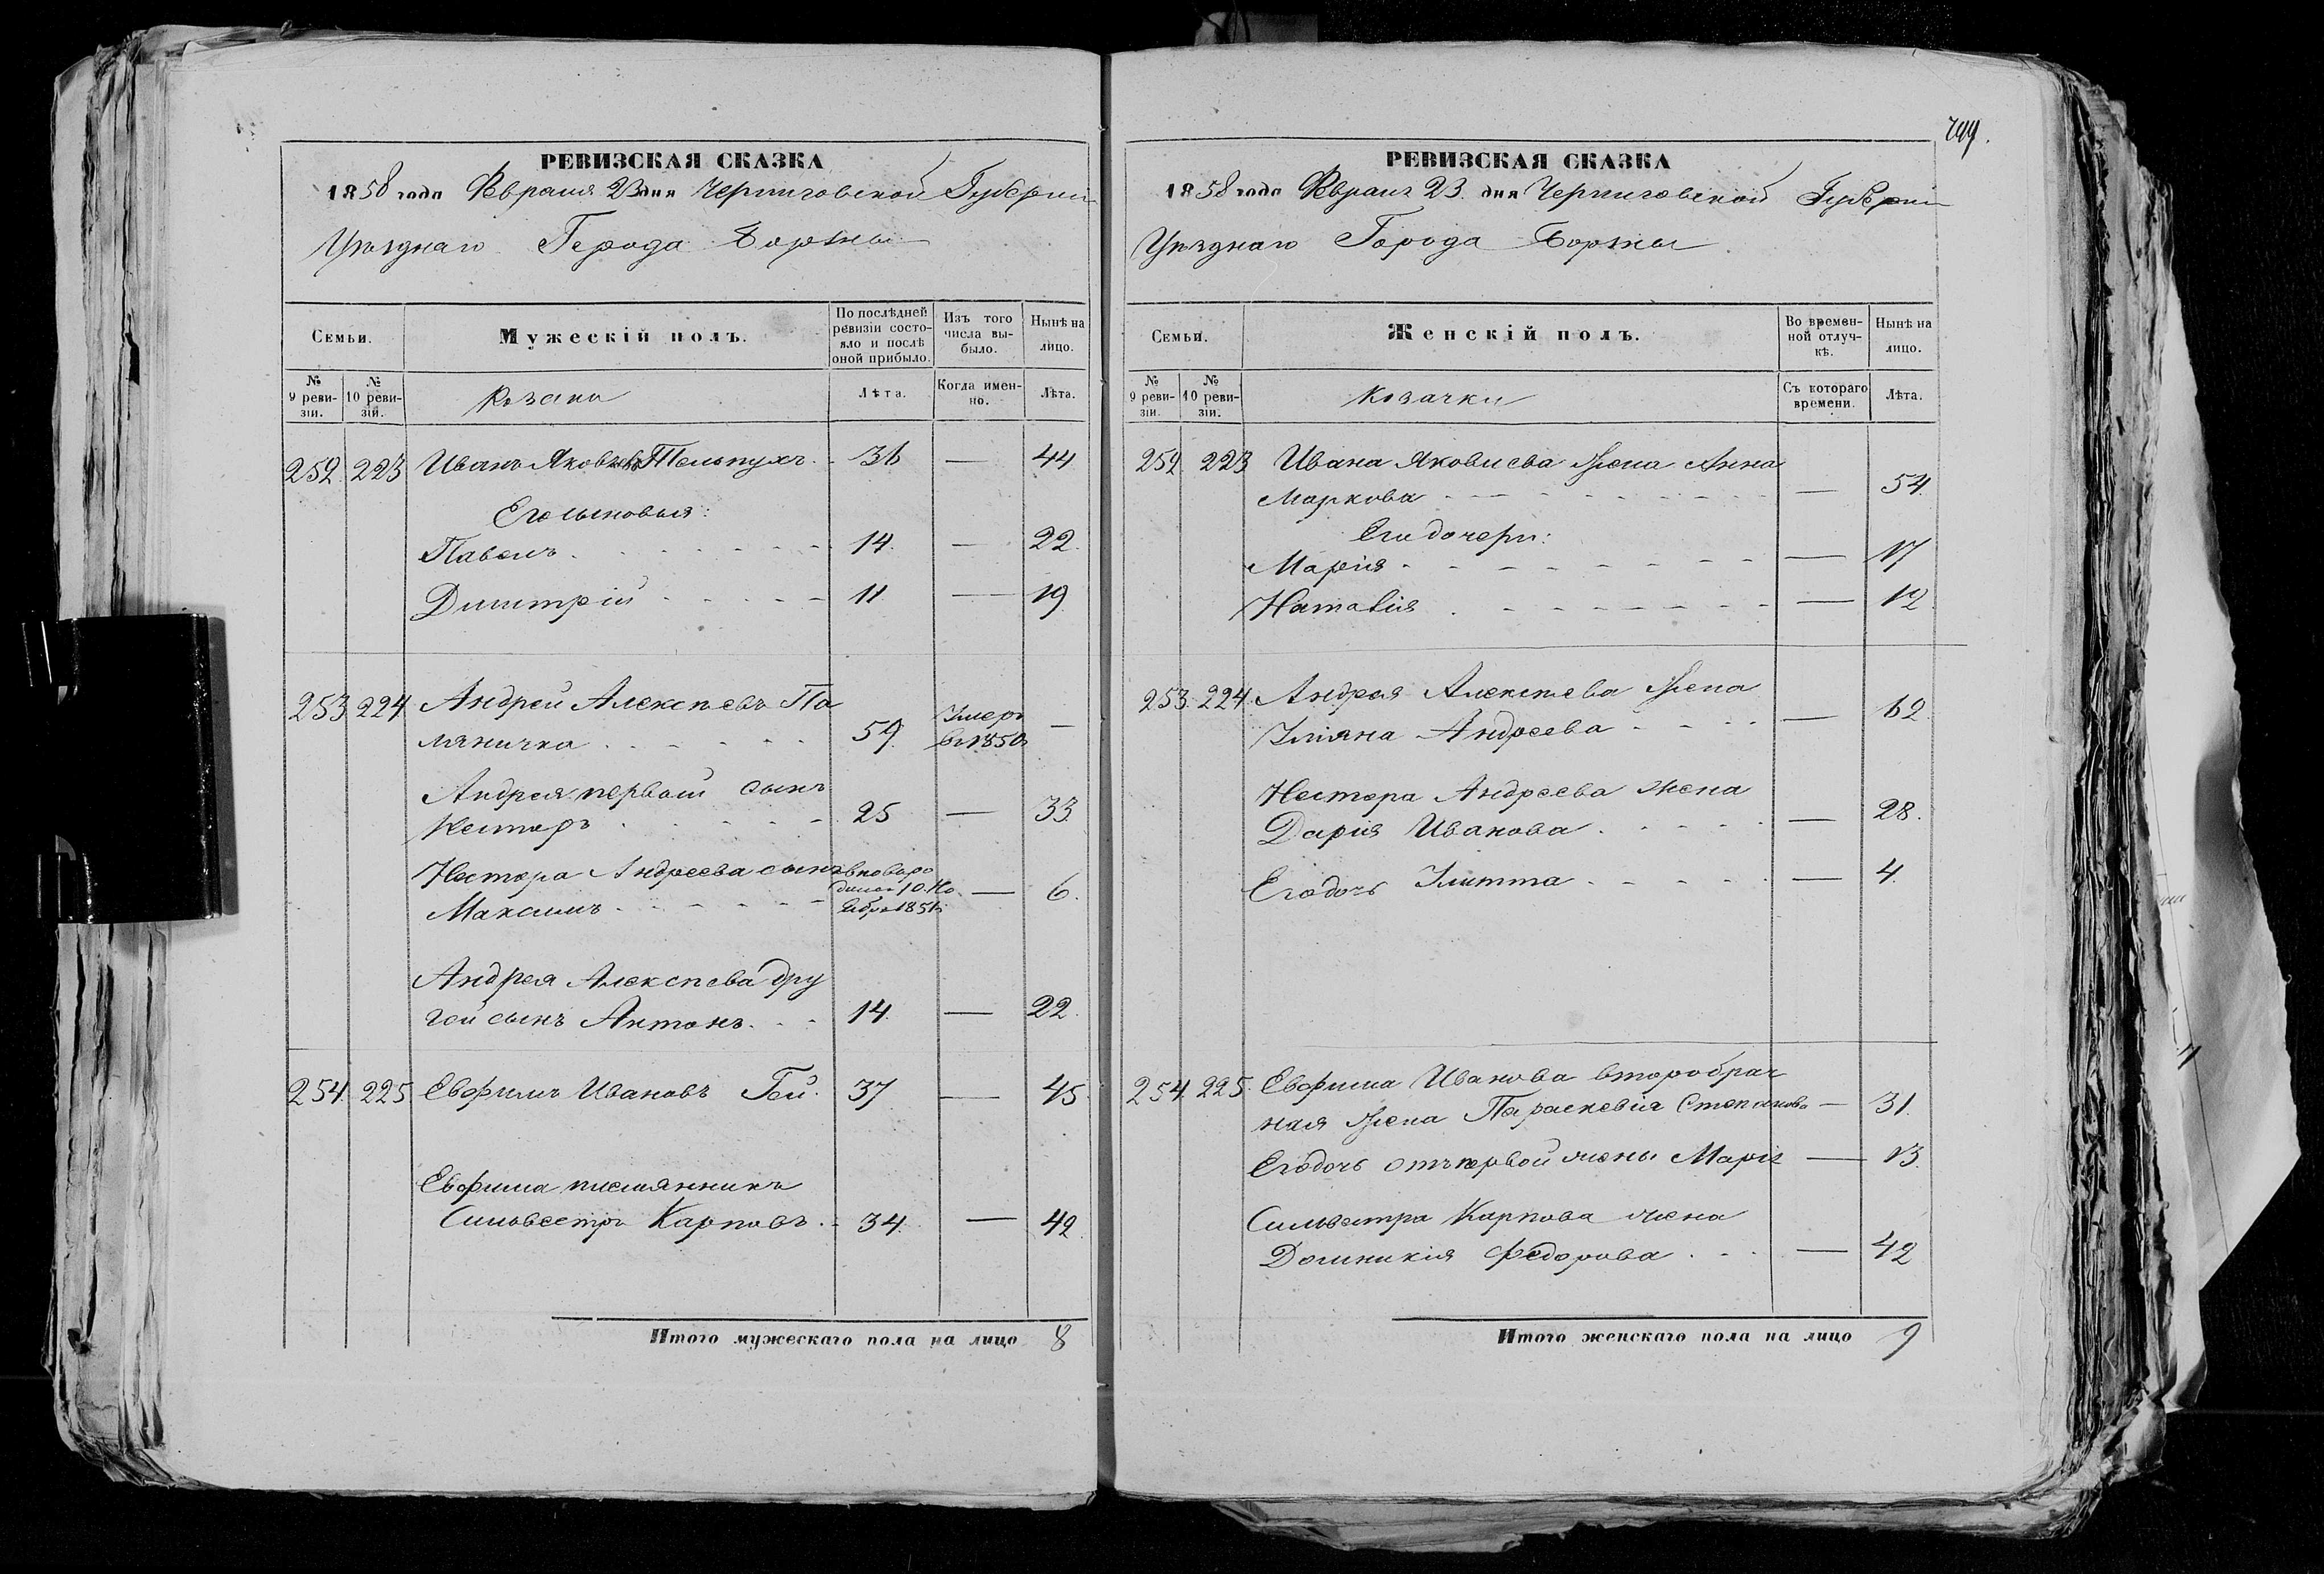 РЕВИЗСКАЯ СКАЗКА
1858 года Февраля 23 дня Черниговской Губерніи
Уѣзднаго Города Борзны
Семьи.
Мужескій полъ.
По послѣдней ревизіи состояло и послѣ оной прибыло.
Изъ того числа выбыло.
Нынѣ на лицо.
№ 9 ревизіи.
№ 10 ревизіи.
Козаки
Лѣта.
Когда именно.
Лѣта.
252. 223 Иванъ Яковлевъ Тельпухъ. 36 — 44
Его сыновья:
Павелъ 14. — 22.
Димитрій 11 — 19
253 224 Андрей Алексѣевъ Па
ляничка 59. Умеръ въ 1850 —
Андрея первый сынъ
Несторъ 25 — 33.
Нестора Андреева сынъ
Максимъ вновьро
10. Но
ября 1851 — 6.
Андрея Алексѣева дру
гой сынъ Антонъ 14. — 22.
254. 225 Евфимъ Ивановъ Гей. 37 — 45
Евфима племянникъ
Сильвестръ Карповъ 34. — 42
Итого мужескаго пола на лицо 8
РЕВИЗСКАЯ СКАЗКА
1858 года Февраля 23. дня Черниговской Губерніи
Уѣзднаго Города Борзны
Семьи.
Женскій полъ.
Во временной отлучкѣ.
Нынѣ на лицо.
№ 9 ревизіи.
№ 10 ревизіи.
Козачки
Съ котораго времени.
Лѣта.
252 223 Ивана Яковлева жена Анна
Маркова — 54.
Его дочери:
Марія — 17
Наталія — 12
253. 224 Андрея Алексѣева жена
Уліяна Андреева — 62.
Нестора Андреева жена
Дарія Иванова — 28.
Его дочь Улитта — 4.
254. 225. Евфима Иванова второбрач
ная жена Параскевія Степанова — 31.
Его дочь отъ первой жены Марія — 13.
Сильвестра Карпова жена
Домникія Федорова — 42
Итого женскаго пола на лицо 9